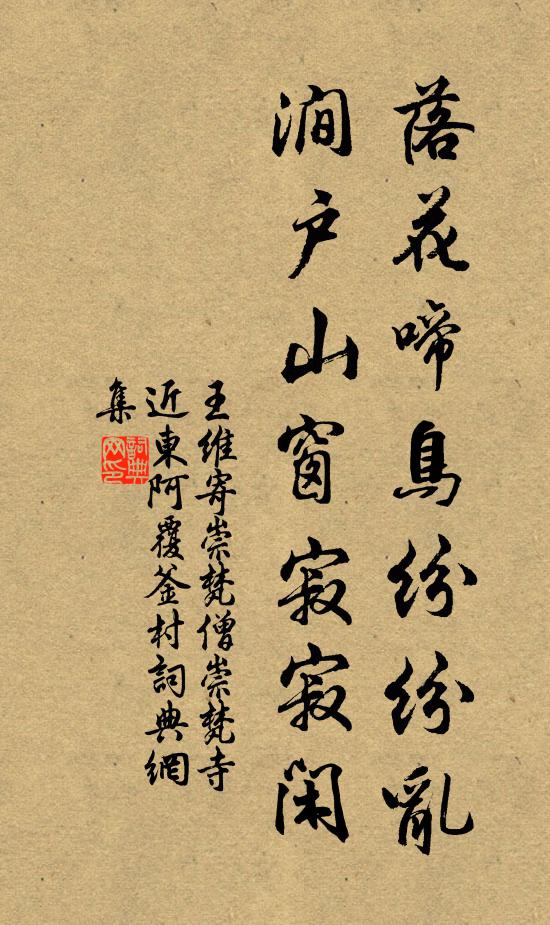 落花啼鳥紛紛亂
澗户山窗寂寂閑
王維寄崇梵僧崇梵寺
近東阿覆釜村詞典網
集
詞典網印